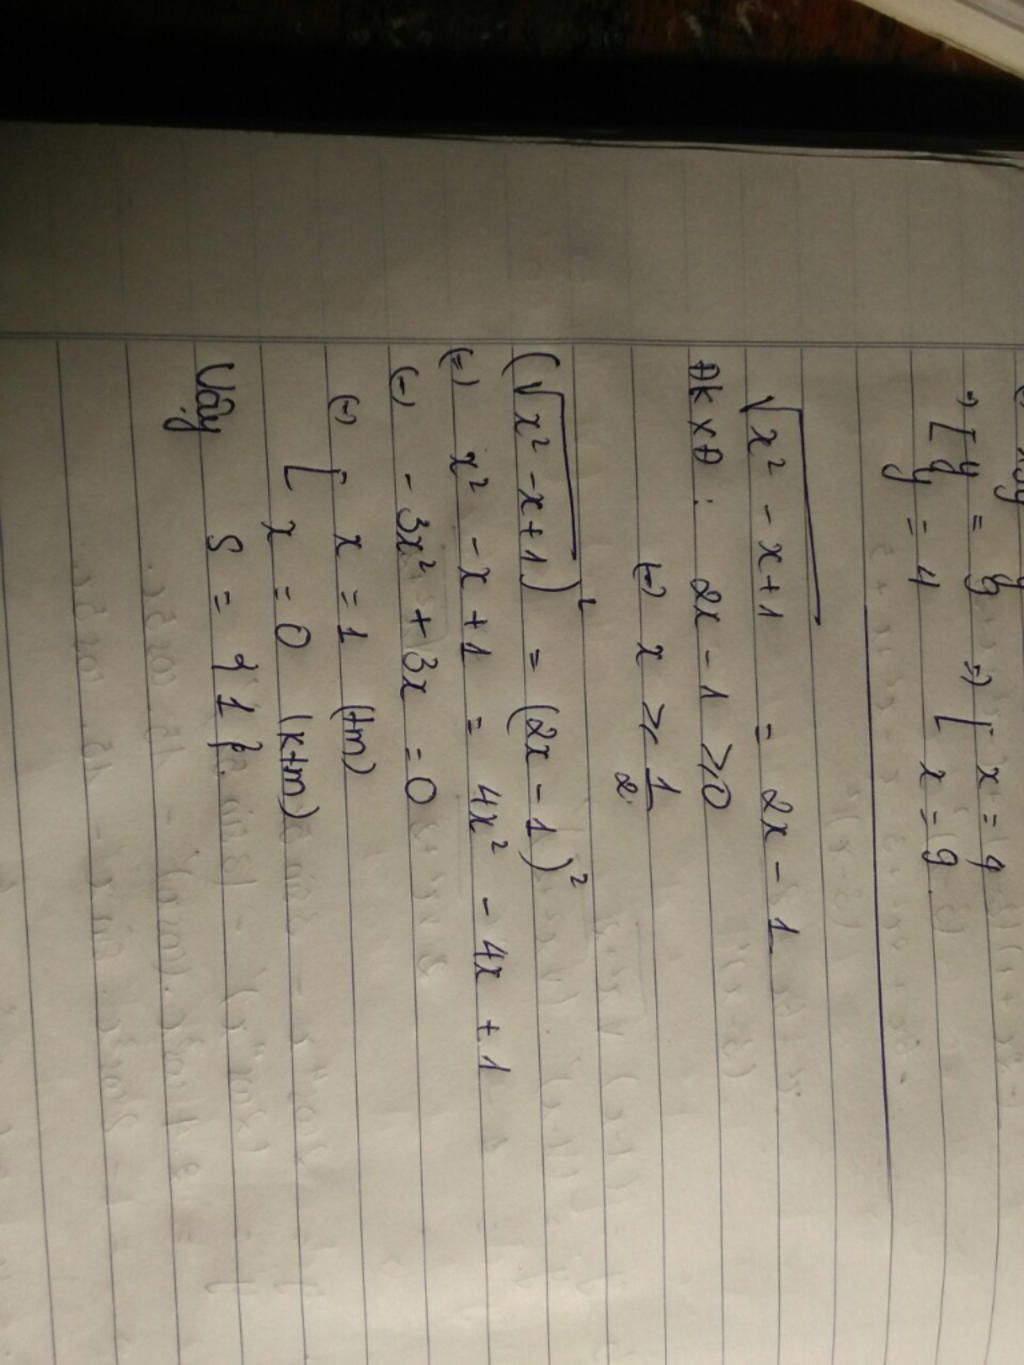 [ y = 9 => [ x = 4
y = 4 x = 9
√x² - x + 1 = 2x - 1
ĐKXĐ : 2x - 1 ⩾ 0
(=) x ⩾ 1/2
(√x² - x + 1)² = (2x - 1)²
(=) x² - x + 1 = 4x² - 4x + 1
(=) - 3x² + 3x = 0
(=) [ x = 1 (tm)
x = 0 (ktm)
Vậy S = {1}.